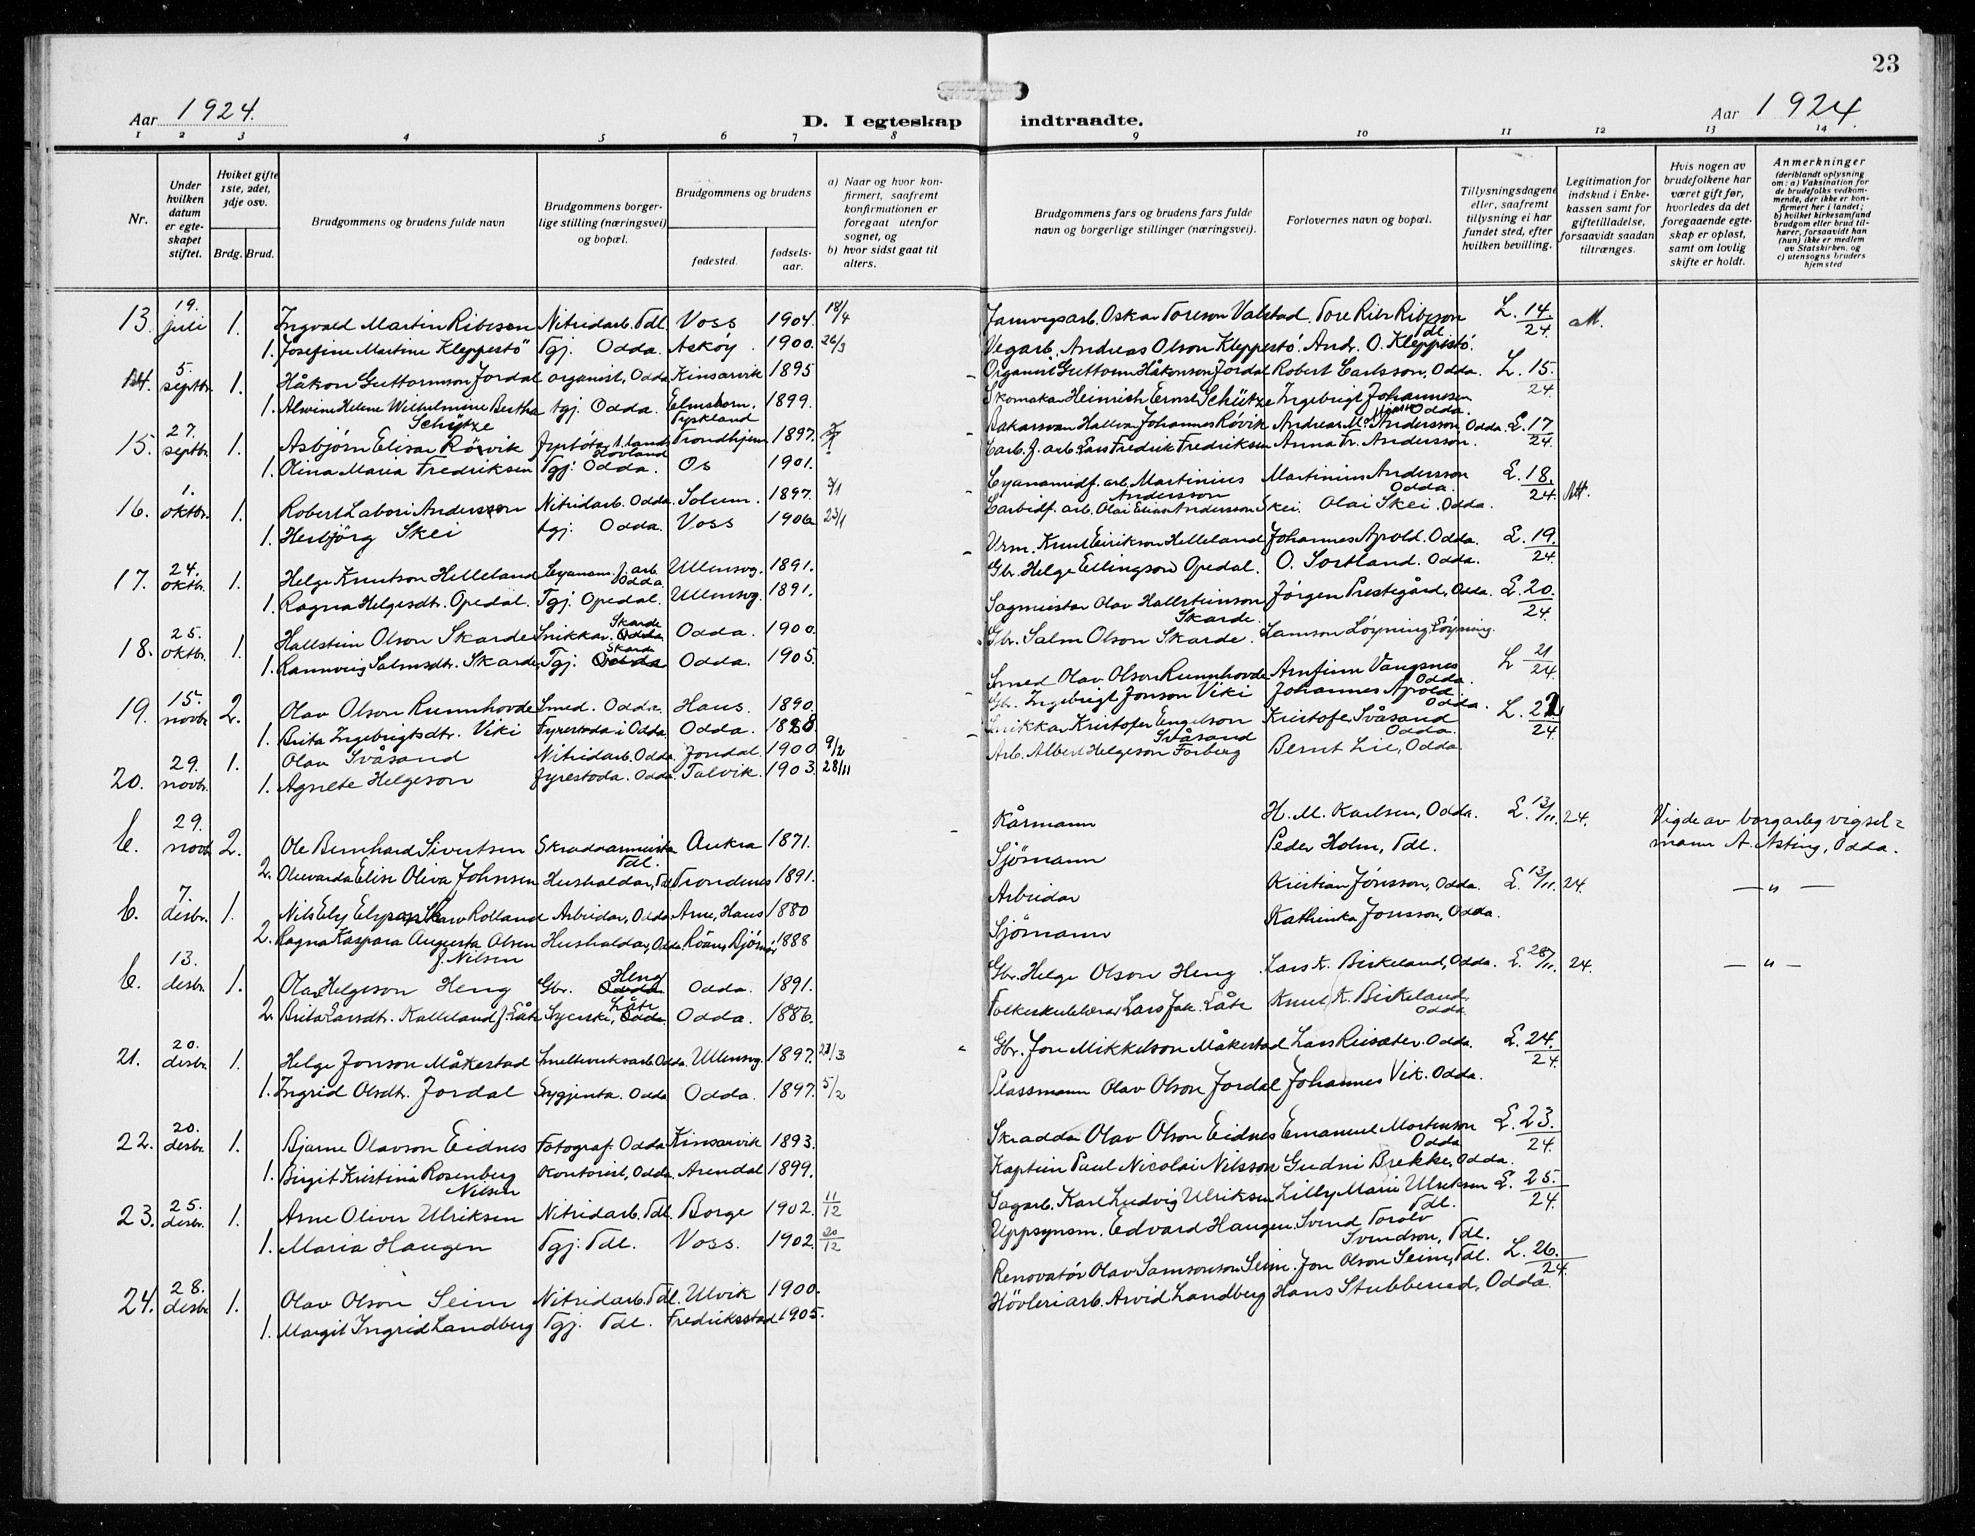 23
Aar 1924.
D. I egteskap indtraadte.
Aar 1924.
1 2 3 4 5 6 7 8 9 10 11 12 13 14
Nr.
Under hvilken datum er egteskapet stiftet.
Hviket gifte 1ste, 2det, 3dje osv.
Brdg. Brud.
Brudgommens og brudens fulde navn
Brudgommens borgerlige stilling (næringsvei) og bopæl.
Brudgommens og brudens
fødested.
fødselsaar.
a) Naar og hvor konfirmert, saafremt konfirmationen er foregaat utenfor sognet, og
b) hvor sidst gaat til alters.
Brudgommens fars og brudens fars fulde navn og borgerlige stillinger (næringsvei).
Forlovernes navn og bopæl.
Tillysningsdagene eller, saafremt tillysning ei har fundet sted, efter hvilken bevilling.
Legitimation for indskud i Enkekassen samt for giftetilladelse, forsaavidt saadan tiltrænges.
Hvis nogen av brudefolkene har været gift før, hvorledes da det foregaaende egteskap er opløst, samt om lovlig skifte er holdt.
Anmerkninger (deriblandt oplysning om: a) Vaksination for de brudefolks vedkommende, der ikke er konfirmert her i landet; b) hvilket kirkesamfund brudgom eller brud tilhører, forsaavidt han (hun) ikke er medlem av Statskirken, og c) utensogns bruders hjemsted
13. 19. juli 1. Ingvald Martin Ribeson Nitridarb. Tdl. Voss 1904. 18/4 Jarnvegsarb. Oskar Toreson Valstad. Tore Ribr Ribeson Tdl. L. 14/24
1. Josefine Martine Kleppestö Tgj. Odda. Askøy. 1900. 26/3 Vegarb. Andreas Olson Kleppestö. Andr. O. Kleppestö.
14. 5. septbr. 1. Håkon Guttormson Jordal organist, Odda Kinsarvik 1895 Organist Guttorm Håkonson Jordal Robert Carlsson, Odda. L. 15./24.
1. Alwine Helene Wilhelmine Bertha Schütze tgj. Odda. Elmshorn. Tyskland 1899. Skomakar Heinrich Ernst Schütze Ingebrigt Johannesen Odda.
15. 27. septbr. 1. Asbjørn Elisar Rövik Trondhjem 1897. Bakarsvan Hallvar Johannes Rövik Andreas M. Andersson, Odda. L. 17/24.
1. Olina Maria Fredriksen Tgj. Odda. Os 1901. Carb. f. arb. Lars Fredrik Fredriksen Anna Fr. Andersson.
16. 1. oktbr. 1. Robert Labori Andersson Nitridarb. Odda. Solum. 1897. Cyanamidf. arb. Martinius Andersson Martinius Andersson Odda. L. 18./24.
1. Herbjörg Skei tgj. Odda. Voss 1906 23/1 Carbidf. arb. Olai Elias Andersson Skei. Olai Skei. Odda.
17. 24. oktbr. 1. Helge Knutson Helleland Cyanam. f. arb. Odda Ullensvg. 1891. Vrm. Knut Eirikson Helleland Johannes Apold. Odda. L. 19./24.
1. Ragna Helgesdtr. Opedal. Tgj. Opedal. Ullensvg. 1891. Gbr. Helge Ellingson Opedal. O. Sortland. Odda.
18. 25. oktbr. 1. Hallstein Olson Skarde Snikkar. Skarde Odda Odda. 1900. Sagmeistar Olav Hallsteinson Skarde. Jörgen Prestegård, Odda. L. 20./24.
1. Rannveig Salmsdtr. Skarde Tgj. Skarde Odda Odda. 1905. Gbr. Salm Olson Skarde. Samson Löyning Löyning.
19. 15. novbr. 2. Olav Olson Runnhovde Smed. Odda. Haus. 1890. Smed Olav Olson Runnhovde Arnfinn Vangsnes Odda. L 21/24.
1. Brita Ingebrigtsdtr. Viki Fyrestoda i Odda Odda. 1888. Gbr. Ingebrigt Jonson Viki Johannes Apold. Odda.
20. 29. novbr. 1. Olav Svåsand Nitridarb. Odda. Jondal. 1900 9/2 Snikkar Kristofer Engelson Svåsand Kristofer Svåsand Odda. L. 22/24
1. Agnete Helgeson fyrestoda. Odda. Talvik. 1903. 28/11 Arb. Albert Helgeson Forberg Bernt Lie, Odda.
C. 29. novb. 2. Ole Bernhard Sivertsen Skraddarmeistar Tdl. Aukra 1871. Kårmann H. M. Karlsen, Odda. L. 13/11. 24. Vigde av borgarleg vigsel=mann A. Asting, Odda.
2. Olevarda Elise Oliva Johnsen Hushaldar, Tdl. Trondenes 1891. Sjömann Peder Holm, Tdl.
C. 7. desbr. 1. Nils Ely Rolland Arbeidar, Odda Arne, Haus 1880 Arbeidar Kristian Jónsson, Odda. L. 13/11. 24. — " —
2. Ragna Kaspara Augusta Olsen f. Nilsen Hushaldar, Odda 1888 Sjömann Kathinka Jonsson, Odda.
C. 13. desbr. 1. Olav Helgeson Heng Gbr. Heng Odda Odda. 1891. Gbr. Helge Olson Heng. Lars K. Birkeland, Odda. L. 28/11. 24. — " —
2. Brita Larsdtr. Kalleland f. Låte Syerske, Låte Odda Odda. 1886. Folkeskulelærar Lars Jak. Låte Knut K. Birkeland. Odda.
21. 20. desbr. 1. Helge Jonson Måkestad Smelteverksarb. Odda. Ullensvg. 1897. 23/3 Gbr. Jon Mikkelson Måkestad Lars Reisæter. Odda. L. 24./24.
1. Ingrid Olsdtr. Jordal Sygjenta. Odda Odda. 1897. 5/2 Plassmann Olav Olson Jordal Johannes Vik. Odda.
22. 20. desbr. 1. Bjarne Olavson Eidnes Fotograf. Odda Kinsarvik 1893. Skraddar Olav Olson Eidnes Emanuel Mortenson Odda L. 23./24.
1. Birgit Kristina Rosenberg Nilsen kontorist, Odda. Arendal 1899. Kaptein Paul Nicolai Nilsson Gudni Brekke, Odda.
23. 25. desbr. 1. Arne Oliver Ulriksen Nitridarb. Tdl. Borge 1902. 11/12 Sagarb. Karl Ludvig Ulriksen Lilly Marie Ulriksen Tdl. L. 25./24.
1. Maria Haugen Tgj. Tdl. Voss. 1902. 20/12 Uppsynsm. Edvard Haugen. Svend Torolv Svendson, Tdl.
24. 28. desbr. 1. Olav Olson Seim Nitridarb. Tdl. Ulvik 1900. Renovatör Olav Samsonson Seim. Jon Olson Seim, Tdl. L. 26./24.
1. Margit Ingrid Landberg Tgj. Tdl. Fredriksstad 1905. Hövleriarb. Arvid Landberg Hans Stubberud, Odda.